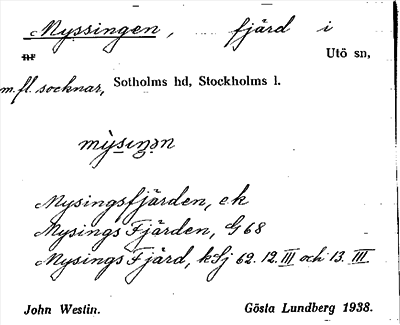 Myssingen, fjärd i
nr Utö sn,
m.fl. socknar, Sotholms hd, Stockholms l.
Mysingsfjärden, ek
Mysings Fjärden, G 68
Mysings Fjärd, kSj 62. 12. III och 13. III
John Westin. Gösta Lundberg 1938.